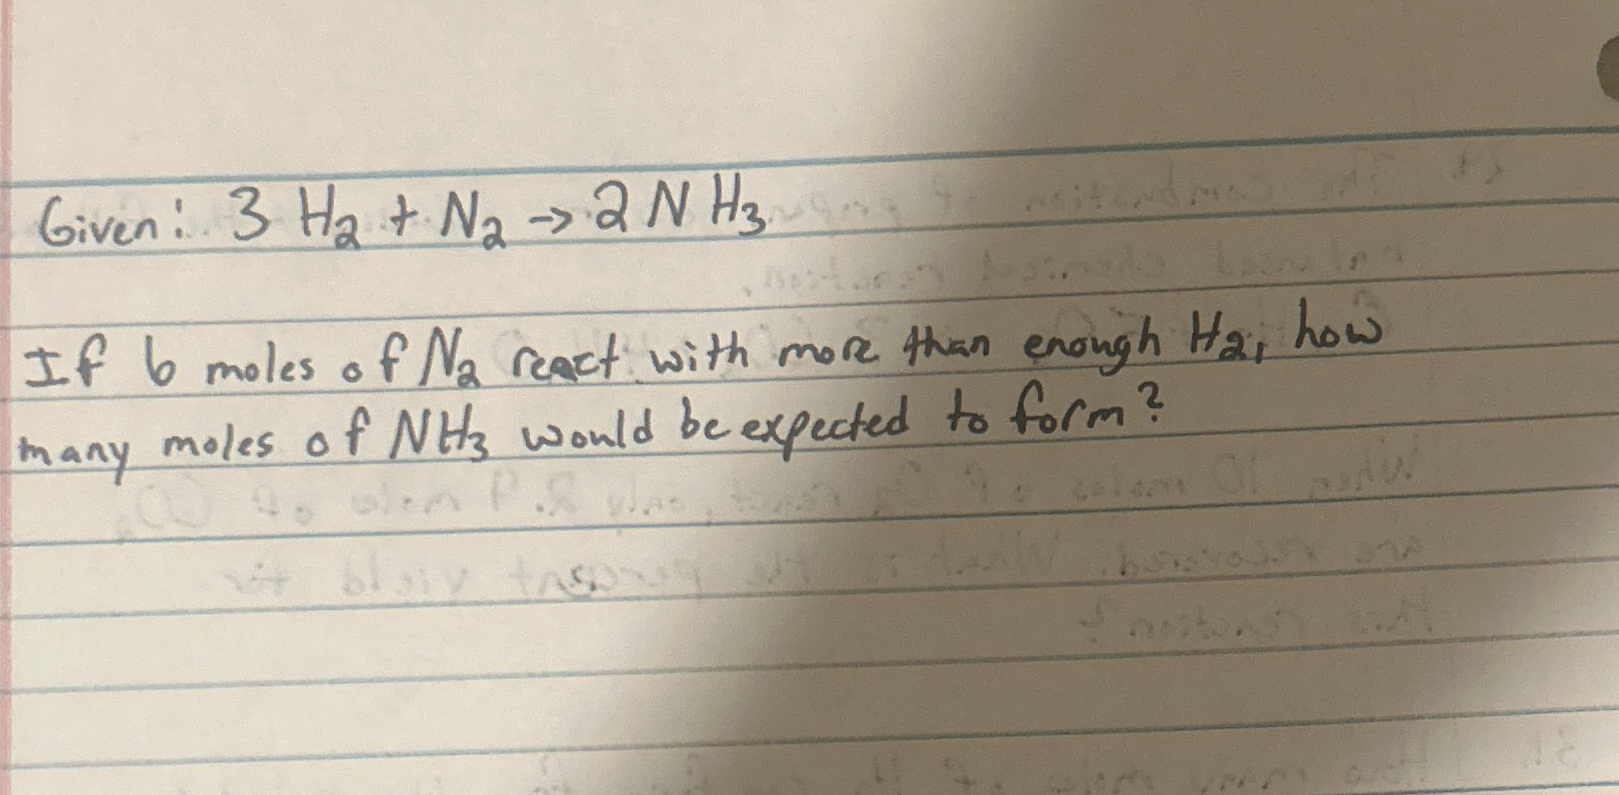 Given: 3 H₂ + N₂ → 2 NH₃
If 6 moles of N₂ react with more than enough H₂, how
many moles of NH₃ would be expected to form?